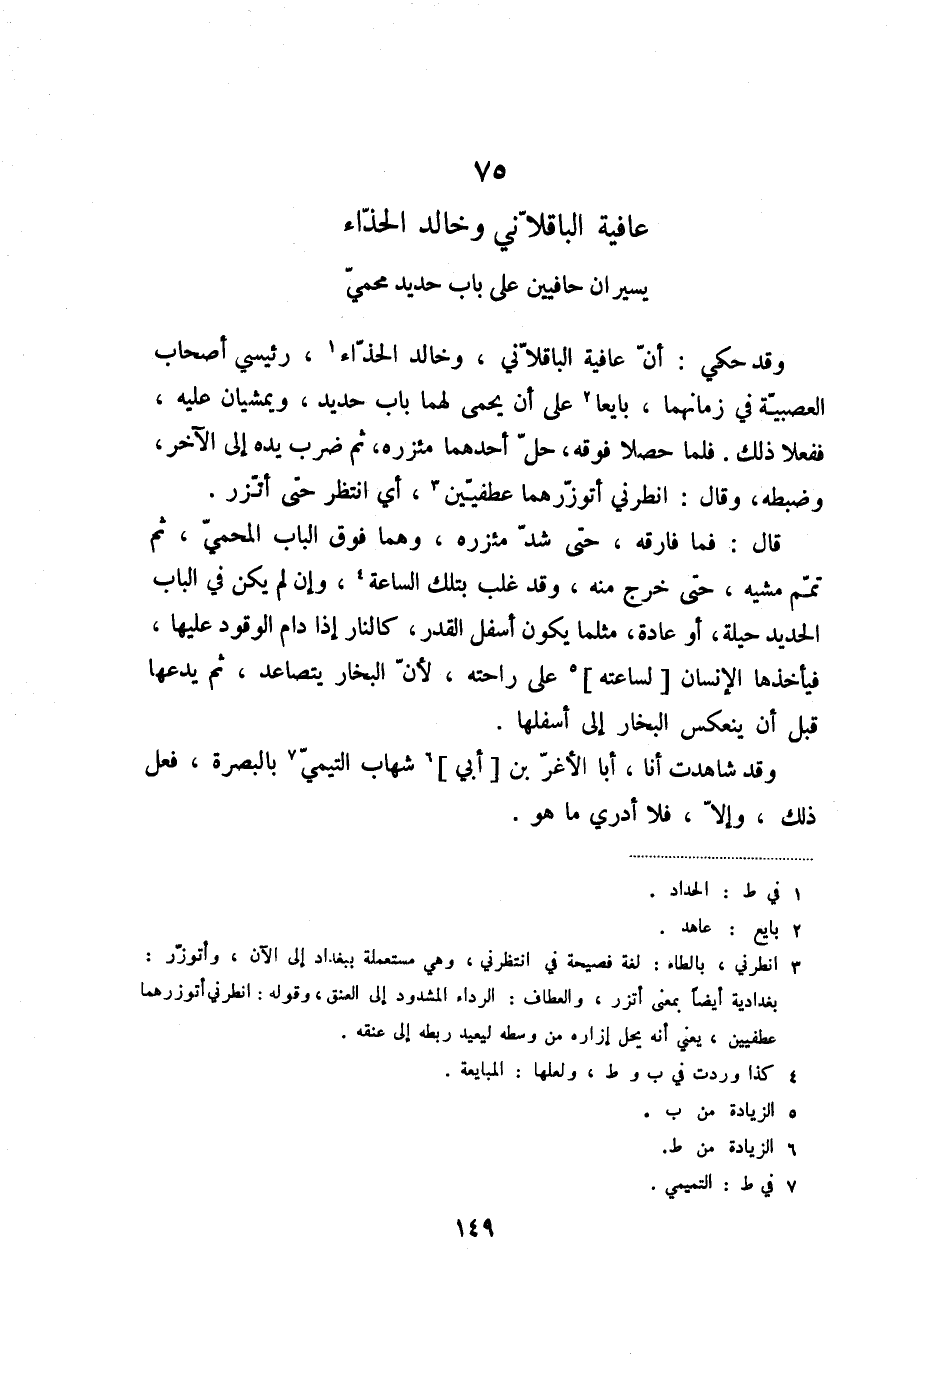 ٧٥
عافية الباقلاّني وخالد الحذّاء
يسيران حافيين على باب حديد محميّ
وقد حكي : أنّ عافية الباقلاّني ، وخالد الحذّاء١ ، رئيسي أصحاب
العصبيّة في زمانهما ، بايعا٢ على أن يحمى لهما باب حديد ، ويمشيان عليه ،
ففعلا ذلك . فلما حصلا فوقه، حلّ أحدهما مئزره، ثم ضرب يده إلى الآخر،
وضبطه، وقال : انطرني أتوزّرهما عطفيّين٣ ، أي انتظر حتّى أتّزر .
قال : فما فارقه ، حتّى شدّ مئزره ، وهما فوق الباب المحميّ ، ثم
تمّم مشيه ، حتّى خرج منه ، وقد غلب بتلك الساعة٤ ، وإن لم يكن في الباب
الحديد حيلة، أو عادة، مثلما يكون أسفل القدر، كالنار إذا دام الوقود عليها ،
فيأخذها الإنسان [ لساعته ]٥ على راحته ، لأنّ البخار يتصاعد ، ثم يدعها
قبل أن ينعكس البخار إلى أسفلها .
وقد شاهدت أنا ، أبا الأغرّ بن [ أبي ]٦ شهاب التيميّ٧ بالبصرة ، فعل
ذلك ، وإلاّ ، فلا أدري ما هو .
١ في ط : الحداد .
٢ بايع : عاهد .
٣ انطرني ، بالطاء : لغة فصيحة في انتظرني ، وهي مستعملة ببغداد إلى الآن ، وأتوزّر :
بغدادية أيضاً بمعنى أتزر ، والعطاف : الرداء المشدود إلى العنق ، وقوله : انطرني أتوزرهما
عطفيين ، يعني أنه يحل إزاره من وسطه ليعيد ربطه إلى عنقه .
٤ كذا وردت في ب و ط ، ولعلها : المبايعة .
٥ الزيادة من ب .
٦ الزيادة من ط.
٧ في ط : التميمي .
١٤٩